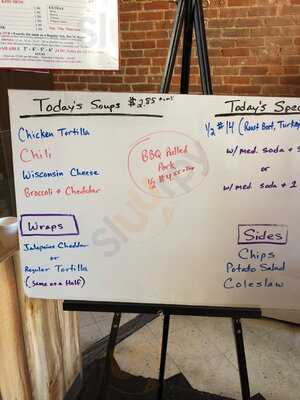 Today's Soups $2.85
Chicken Tortilla
Chili
Wisconsin Cheese
Broccoli + Cheddar
BBQ Pulled
Pork
Wraps
Jalapeino Cheddar
or
Regular Tortilla
(Same as a Half)
Today's Spec
1/2 #14 (Roast Beef, Turkey
w/med. soda +
or
w/ med. soda + 1
Sides
Chips
Potato Salad
Coleslaw